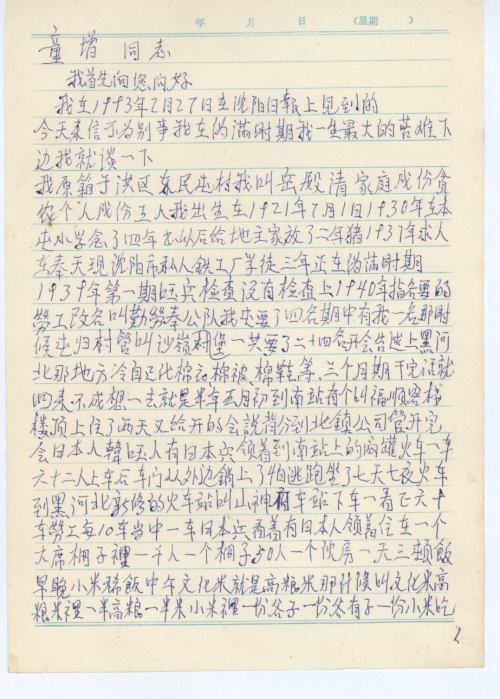 年 月 日 (星期 )
童增同志
我首先向您问好
我在1993年2月27日在沈阳日报上见到的
今天来信不为别事我在伪满时期我一生最大的苦难下
边我就谈一下
我原籍于洪区东民屯村我叫岳殿清家庭成份贫
农个人成份工人我出生在1921年7月1日1930年在本
屯小学念了四年书以后给地主家放了二年猪1937年求人
在奉天现沈阳市私人铁工厂学徒三年正在伪满时期
1939年第一期国兵检查没有检查上1940年指名要的
劳工改名叫勤劳奉公队我夹要了四名期中有我一名那时
候屯归村管叫沙岭村 一共要了二十四名开会告诉上黑河
北那地方冷自己代棉衣棉被棉鞋等三个月期干完活就
回来不成想一去就是半年五月初到南站有个叫福顺客栈
楼顶上住了两天又给开的会说符分到北镇公司管开完
会日本人韩国人有日本兵领着到南站上的闷罐火车一车
六十二人上车后车门从外边锁上了怕逃跑坐了七天七夜火车
到黑河北新修的火车站叫山神府车站下车一看
车劳工每10车当中一车日本兵看着有日本人领着住在一个
大席棚子裡一千人一个棚子50人一个伙房一天三顿飯
早晚小米稀飯中午文化米就是高粮米那什候叫文化米高
粮米裡一半高粮一半米小米裡一份谷子一份谷有子一份小米吃